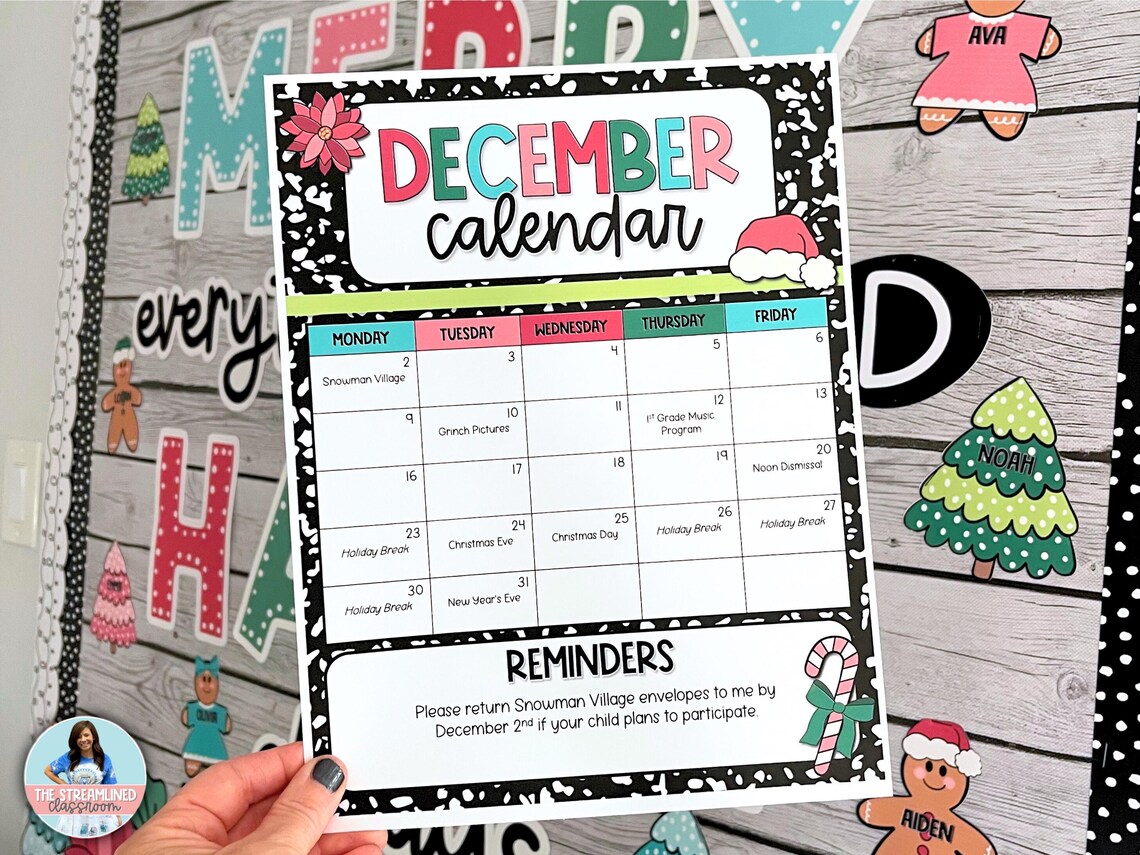 MERRY
AVA
DECEMBER
calendar
everyi
D
MONDAY TUESDAY WEDNESDAY THURSDAY FRIDAY
2 3 4 5 6
Snowman Village
9 10 11 12 13
Grinch Pictures
1st Grade Music
Program
16 17 18 19 20
Noon Dismissal
23 24 25 26 27
Holiday Break Christmas Eve Christmas Day Holiday Break Holiday Break
30 31
Holiday Break New Year's Eve
NOAH
HA
REMINDERS
Please return Snowman Village envelopes to me by
December 2nd if your child plans to participate.
OLIVIA
AIDEN
THE STREAMLINED
classroom